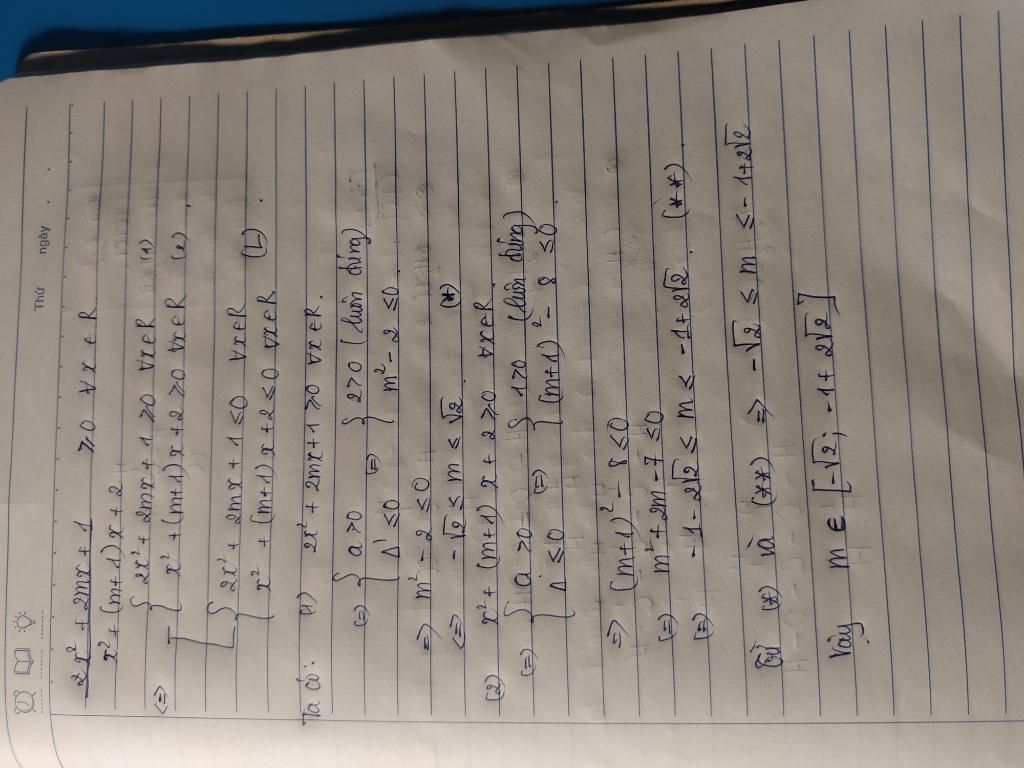 Thứ ngày
2x² + 2mx + 1 ≥ 0 ∀x ∈ R
x² + (m+1)x + 2
<=> [ { 2x² + 2mx + 1 ≥ 0 ∀x∈R (1)
{ x² + (m+1)x + 2 ≥ 0 ∀x∈R (2)
[ { 2x² + 2mx + 1 ≤ 0 ∀x∈R
{ x² + (m+1)x + 2 ≤ 0 ∀x∈R (L).
Ta có: (1) 2x² + 2mx + 1 ≥ 0 ∀x∈R.
(=) { a > 0 (=) { 2 > 0 (luôn đúng)
{ Δ' ≤ 0 { m² - 2 ≤ 0.
=> m² - 2 ≤ 0
<=> -√2 ≤ m ≤ √2 (*)
(2) x² + (m+1)x + 2 ≥ 0 ∀x∈R
(=) { a > 0 (=) { 1 > 0 (luôn đúng)
{ Δ ≤ 0 { (m+1)² - 8 ≤ 0.
=> (m+1)² - 8 ≤ 0
(=) m² + 2m - 7 ≤ 0
(=) -1 - 2√2 ≤ m ≤ -1 + 2√2. (**)
Từ (*) và (**) => -√2 ≤ m ≤ -1 + 2√2
Vậy m ∈ [-√2; -1 + 2√2]